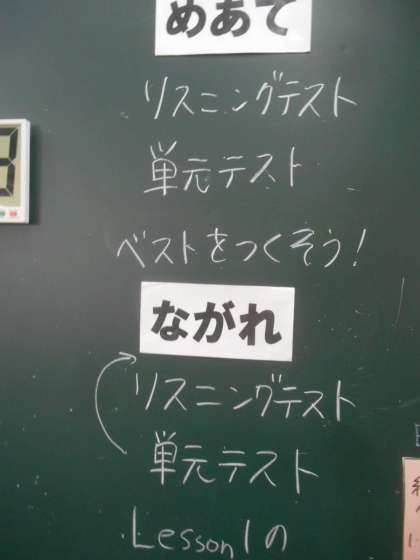 めあて
リスニングテスト
単元テスト
ベストをつくそう!
ながれ
リスニングテスト
単元テスト
Lesson1の